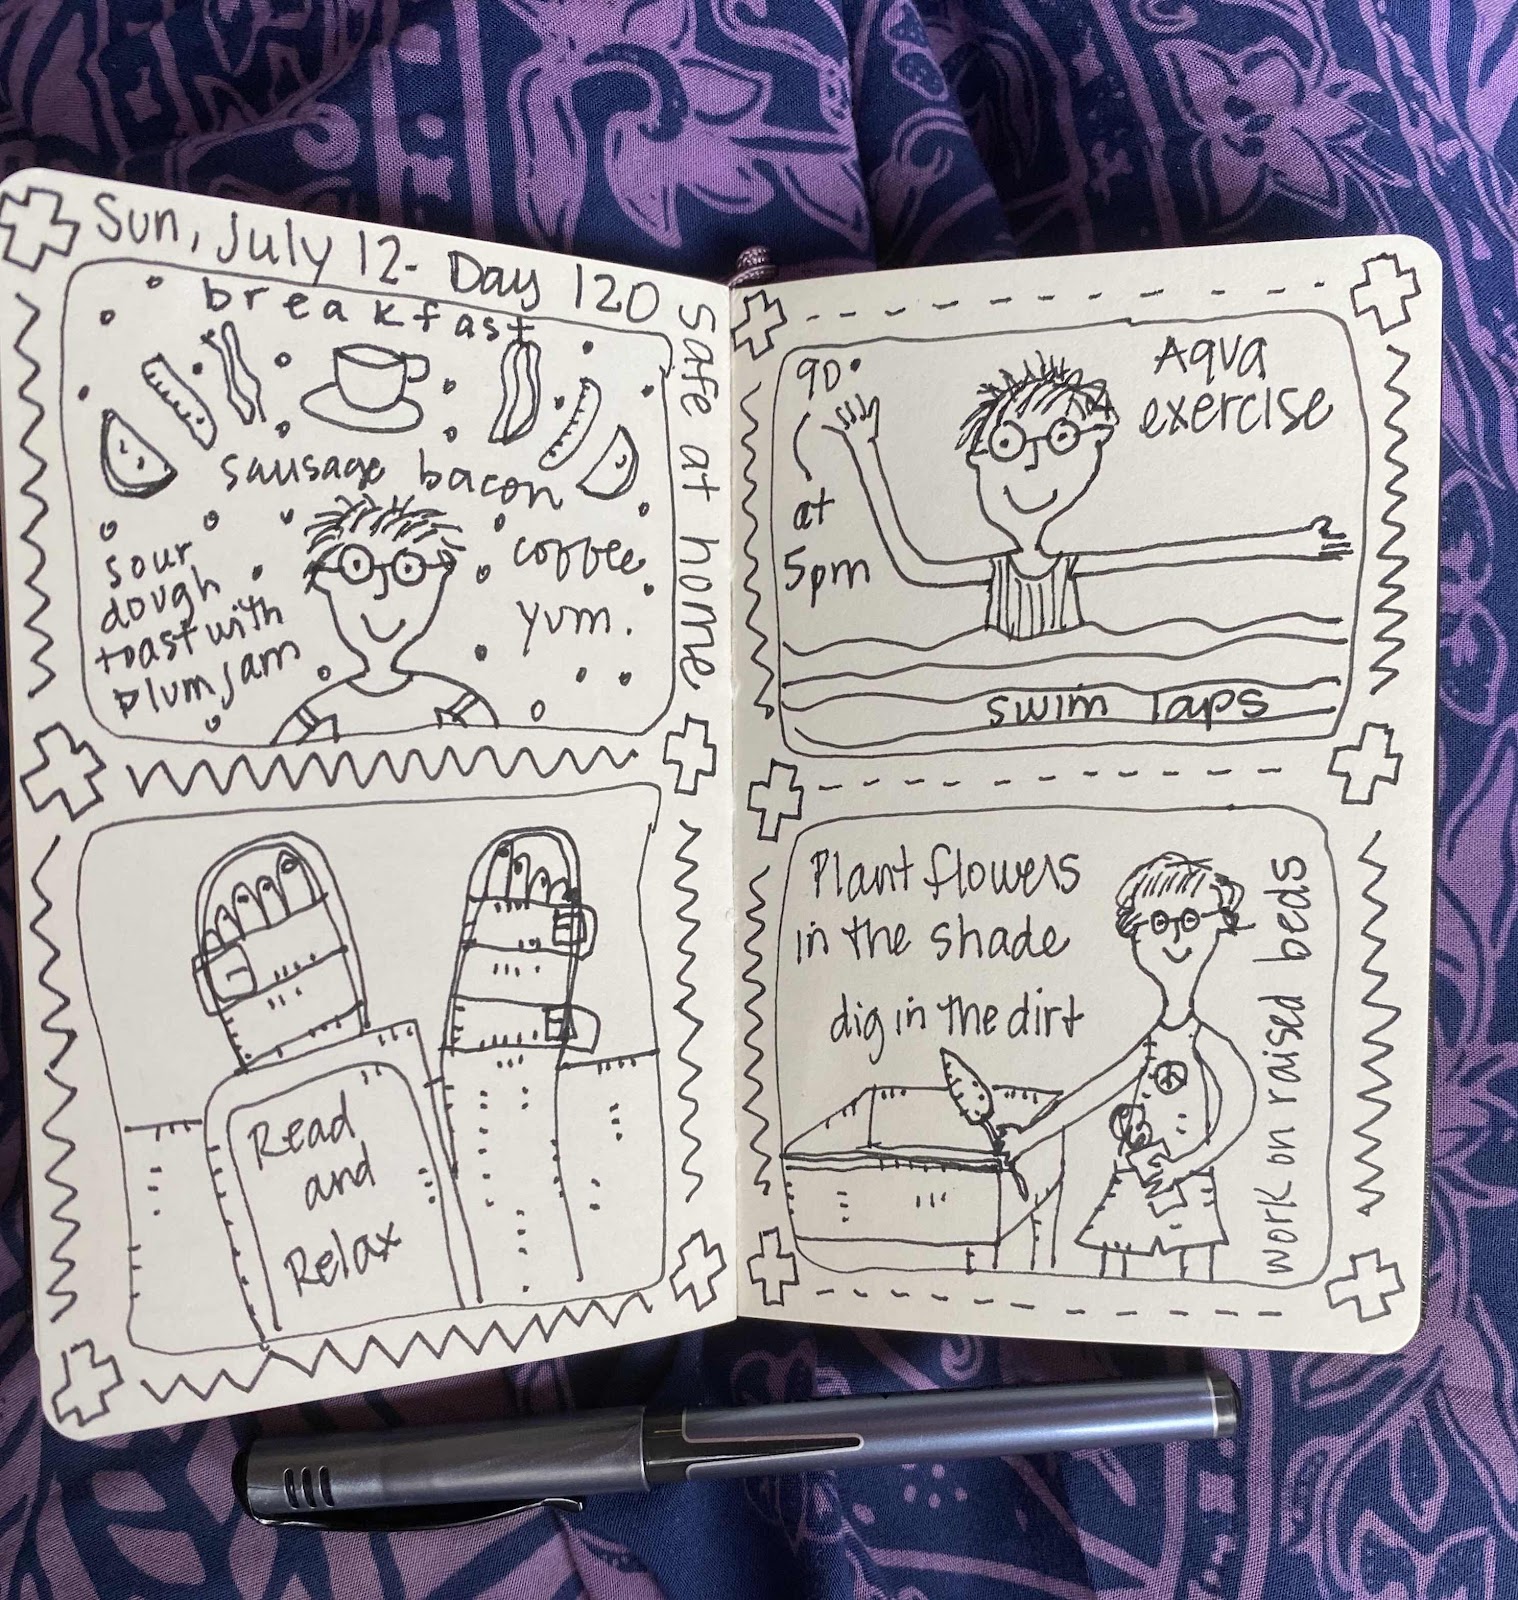 Sun, July 12 - Day 120
Safe at home
breakfast
sausage bacon
sour
dough
toast with
plum jam
coffee
yum.
Read
and
Relax
90°
at
5pm
Aqua
exercise
swim laps
Plant flowers
in the shade
dig in the dirt
work on raised beds